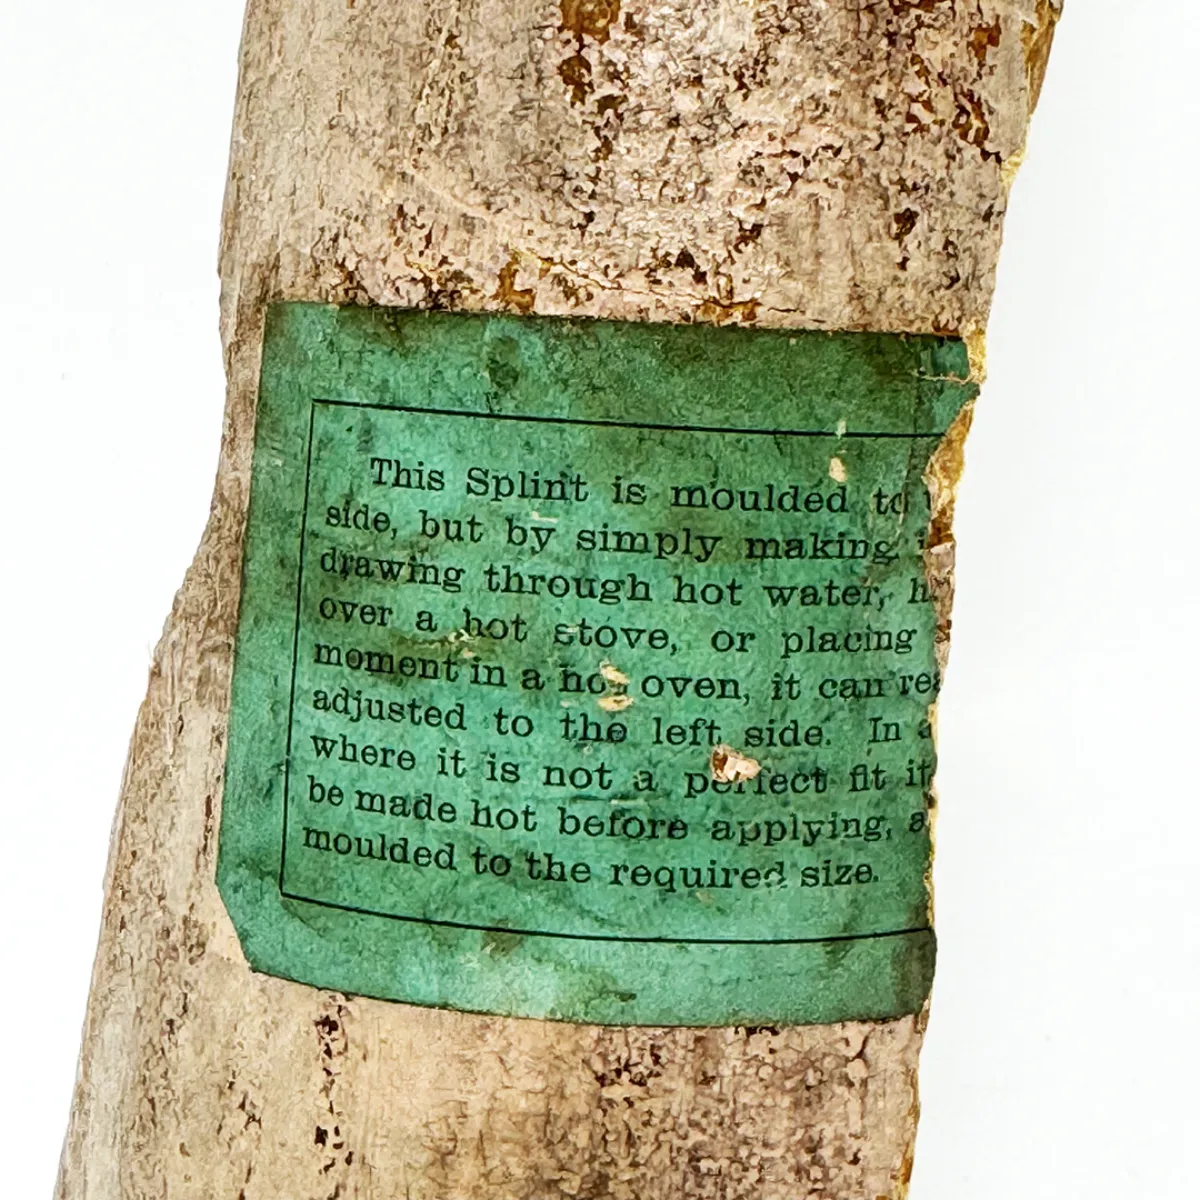 This Splint is moulded to
side, but by simply making
drawing through hot water,
over a hot stove, or placing
moment in a hot oven, it can
adjusted to the left side. In
where it is not a perfect fit it
be made hot before applying,
moulded to the required size.